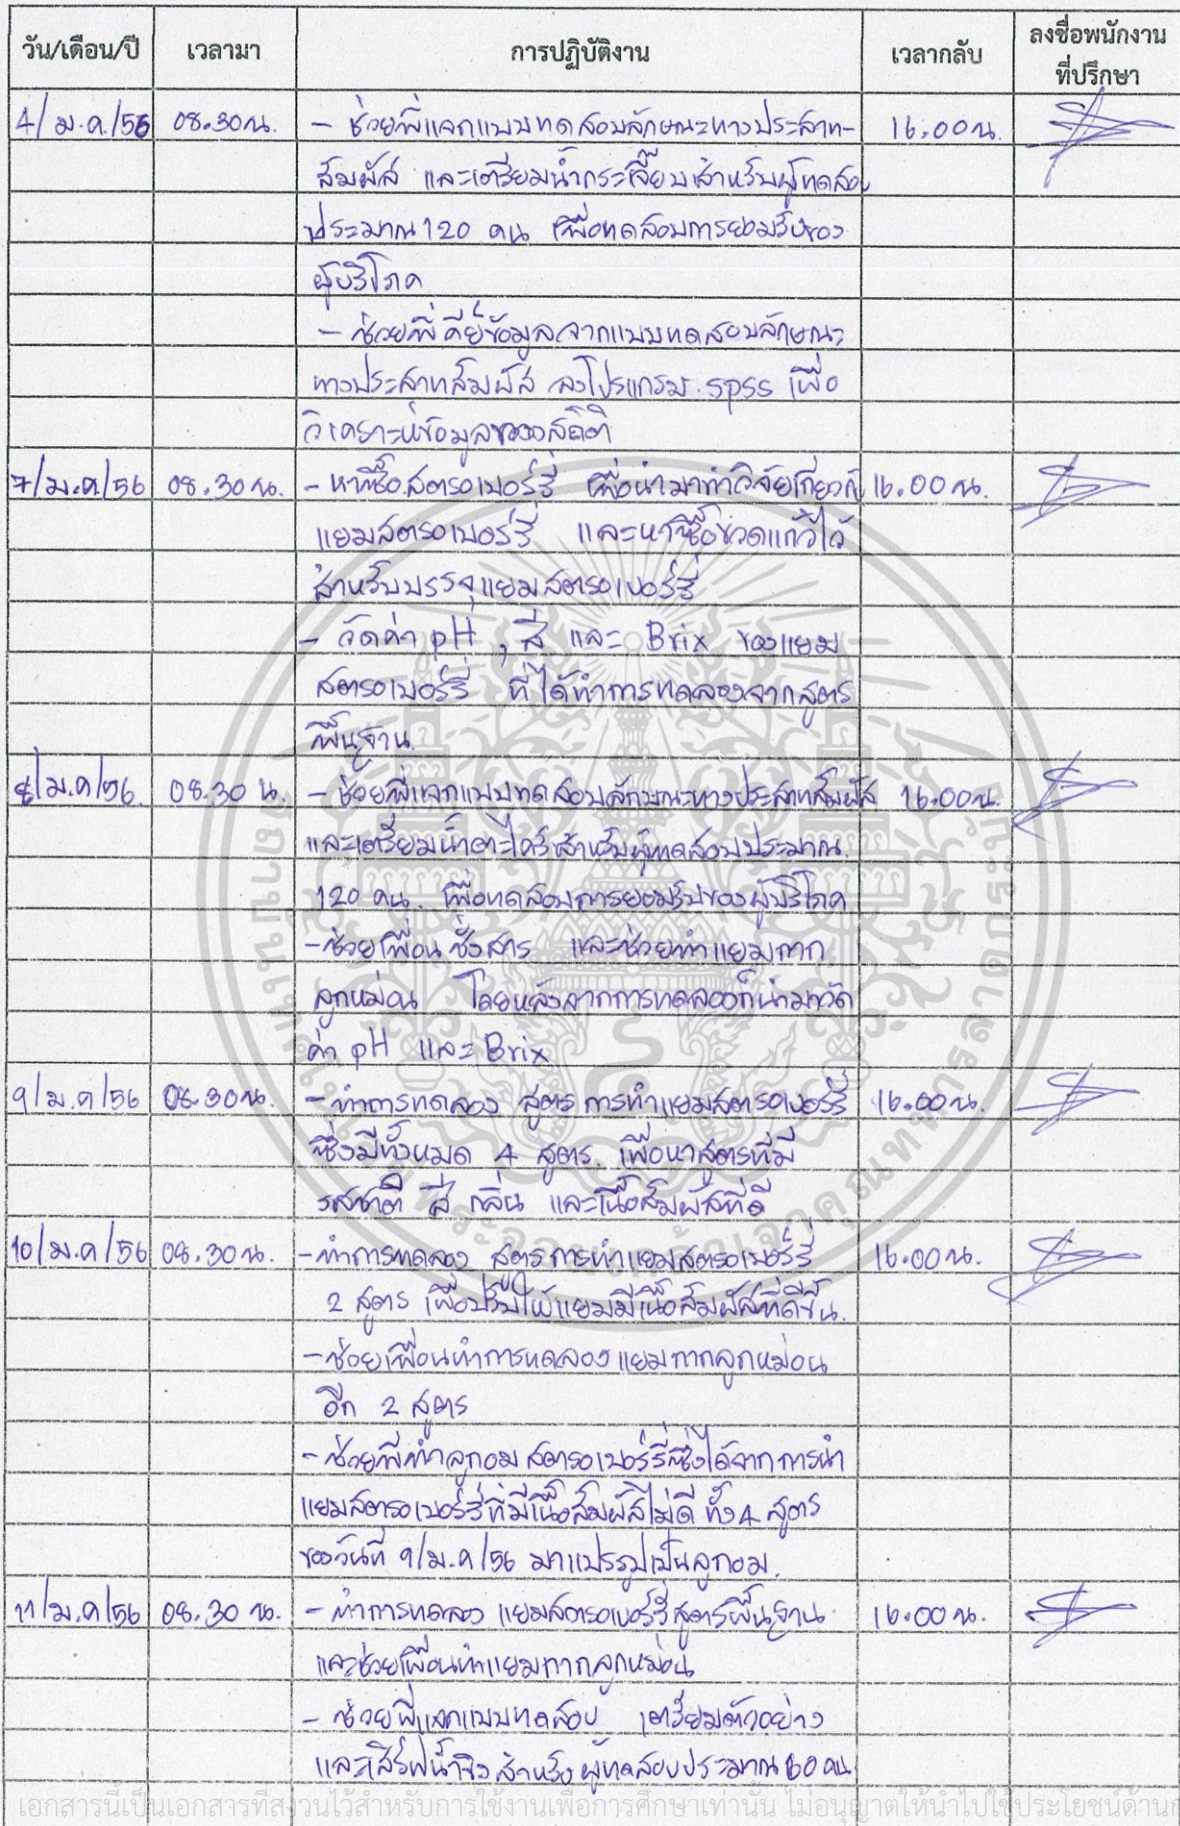 วัน/เดือน/ปี เวลามา การปฏิบัติงาน เวลากลับ ลงชื่อพนักงาน
ที่ปรึกษา
4/ม.ค./56 08.30น. - ช่วยพี่แจกแบบทดสอบลักษณะทางประสาท- 16.00น.
สัมผัส และเตรียมน้ำกระเจี๊ยบสำหรับผู้ทดสอบ
ประมาณ 120 คน เพื่อทดสอบการยอมรับของ
ผู้บริโภค
- ช่วยพี่ คีย์ข้อมูลจากแบบทดสอบลักษณะ
ทางประสาทสัมผัส ลงโปรแกรม spss เพื่อ
วิเคราะห์ข้อมูลทางสถิติ
7/ม.ค./56 08.30น. - หาซื้อสตรอเบอร์รี่ เพื่อนำมาทำวิจัยเกี่ยวกับ 16.00น.
แยมสตรอเบอร์รี่ และหาซื้อขวดแก้วไว้
สำหรับบรรจุแยมสตรอเบอร์รี่
- วัดค่า pH , สี และ Brix ของแยม
สตรอเบอร์รี่ ที่ได้ทำการทดลองจากสูตร
พื้นฐาน.
8/ม.ค/56. 08.30 น. - ช่วยพี่แจกแบบทดสอบลักษณะทางประสาทสัมผัส 16.00น.
และเตรียมน้ำตะไคร้สำหรับผู้ทดสอบประมาณ
120 คน. เพื่อทดสอบการยอมรับของผู้บริโภค
- ช่วยเพื่อน ชั่งสาร และช่วยทำแยมกาก
ลูกหม่อน โดยหลังจากการทดลองก็นำมาวัด
ค่า pH และ Brix
9/ม.ค/56 08.30น. - ทำการทดลอง สูตร การทำแยมสตรอเบอร์รี่ 16.00น.
ซึ่งมีทั้งหมด 4 สูตร. เพื่อหาสูตรที่มี
รสชาติ สี กลิ่น และเนื้อสัมผัสที่ดี
10/ม.ค/56 08.30น. - ทำการทดลอง สูตรการทำแยมสตรอเบอร์รี่ 16.00น.
2 สูตร เพื่อปรับให้แยมมีเนื้อสัมผัสที่ดีขึ้น.
- ช่วยเพื่อนทำการทดลองแยมกากลูกหม่อน
อีก 2 สูตร
- ช่วยพี่ทำลูกอมสตรอเบอร์รี่ซึ่งได้จากการนำ
แยมสตรอเบอร์รี่ที่มีเนื้อสัมผัสไม่ดี ทั้ง 4 สูตร
ของวันที่ 9/ม.ค/56 มาแปรรูปเป็นลูกอม.
11/ม.ค/56 08.30 น. - ทำการทดลอง แยมสตรอเบอร์รี่สูตรพื้นฐาน 16.00น.
และช่วยเพื่อนทำแยมกากลูกหม่อน
- ช่วยพี่แจกแบบทดสอบ เตรียมตัวอย่าง
และเสิร์ฟน้ำขิง สำหรับ ผู้ทดสอบประมาณ 60 คน
เอกสารนี้เป็นเอกสารที่สงวนไว้สำหรับการใช้งานเพื่อการศึกษาเท่านั้น ไม่อนุญาตให้นำไปใช้ประโยชน์ด้านก